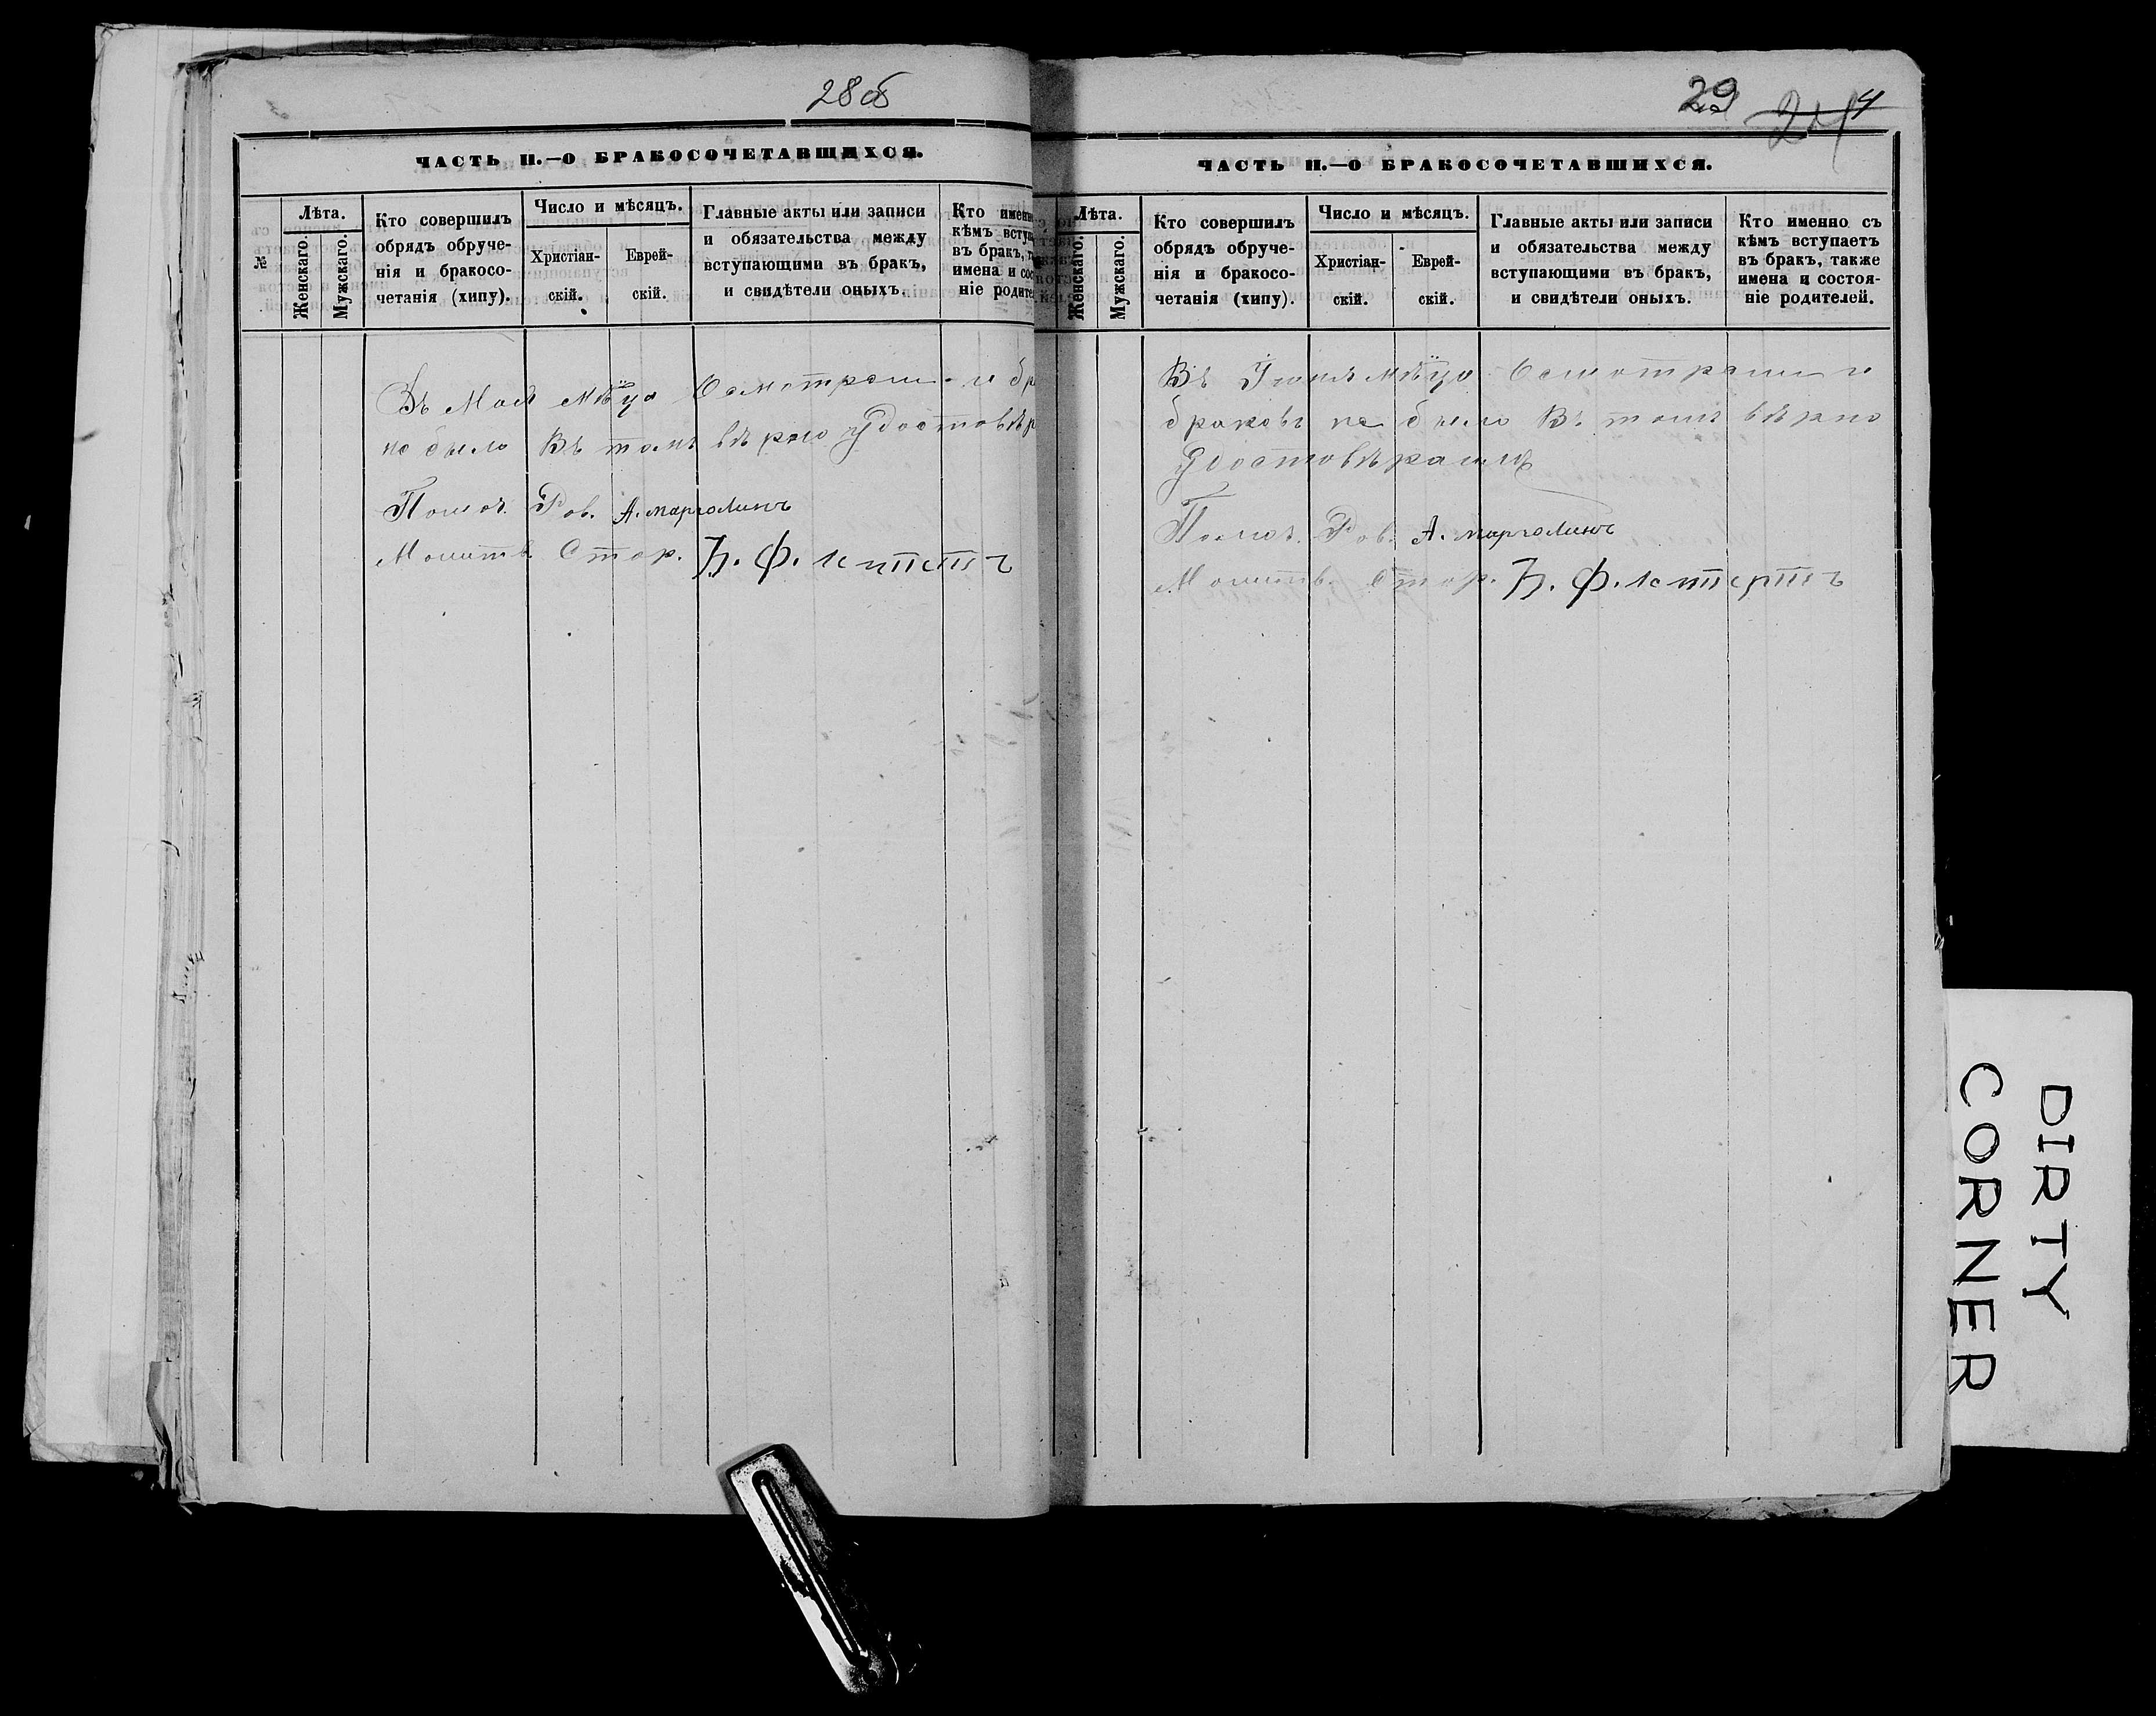 28 об
ЧАСТЬ II.—О БРАКОСОЧЕТАВШИХСЯ.
№
Лѣта.
Женскаго.
Мужскаго.
Кто совершилъ
обрядъ обруче-
нія и бракосо-
четанія (хипу).
Число и мѣсяцъ.
Христіан-
скій.
Еврей-
скій.
Главные акты или записи
и обязательства между
вступающими въ бракъ,
и свидѣтели оныхъ.
Кто именно
кѣмъ вступа
въ бракъ, та
имена и сос
ніе родите
Въ Маѣ мѣца и бр
не было Въ томъ вѣрно удостовѣр
Помощ. Рав. А. Марголинъ
Молитв. Стар. Б. Ф.
29
24
4
ЧАСТЬ II.—О БРАКОСОЧЕТАВШИХСЯ.
Лѣта.
Женскаго.
Мужскаго.
Кто совершилъ
обрядъ обруче-
нія и бракосо-
четанія (хипу).
Число и мѣсяцъ.
Христіан-
скій.
Еврей-
скій.
Главные акты или записи
и обязательства между
вступающими въ бракъ,
и свидѣтели оныхъ.
Кто именно съ
кѣмъ вступаетъ
въ бракъ, также
имена и состоя-
ніе родителей.
Въ Іюнѣ мѣца и
браковъ не было Въ томъ вѣрно
Помощ. Рав. А. Марголинъ
Молитв. Стар. Б. Ф.
DIRTY
CORNER